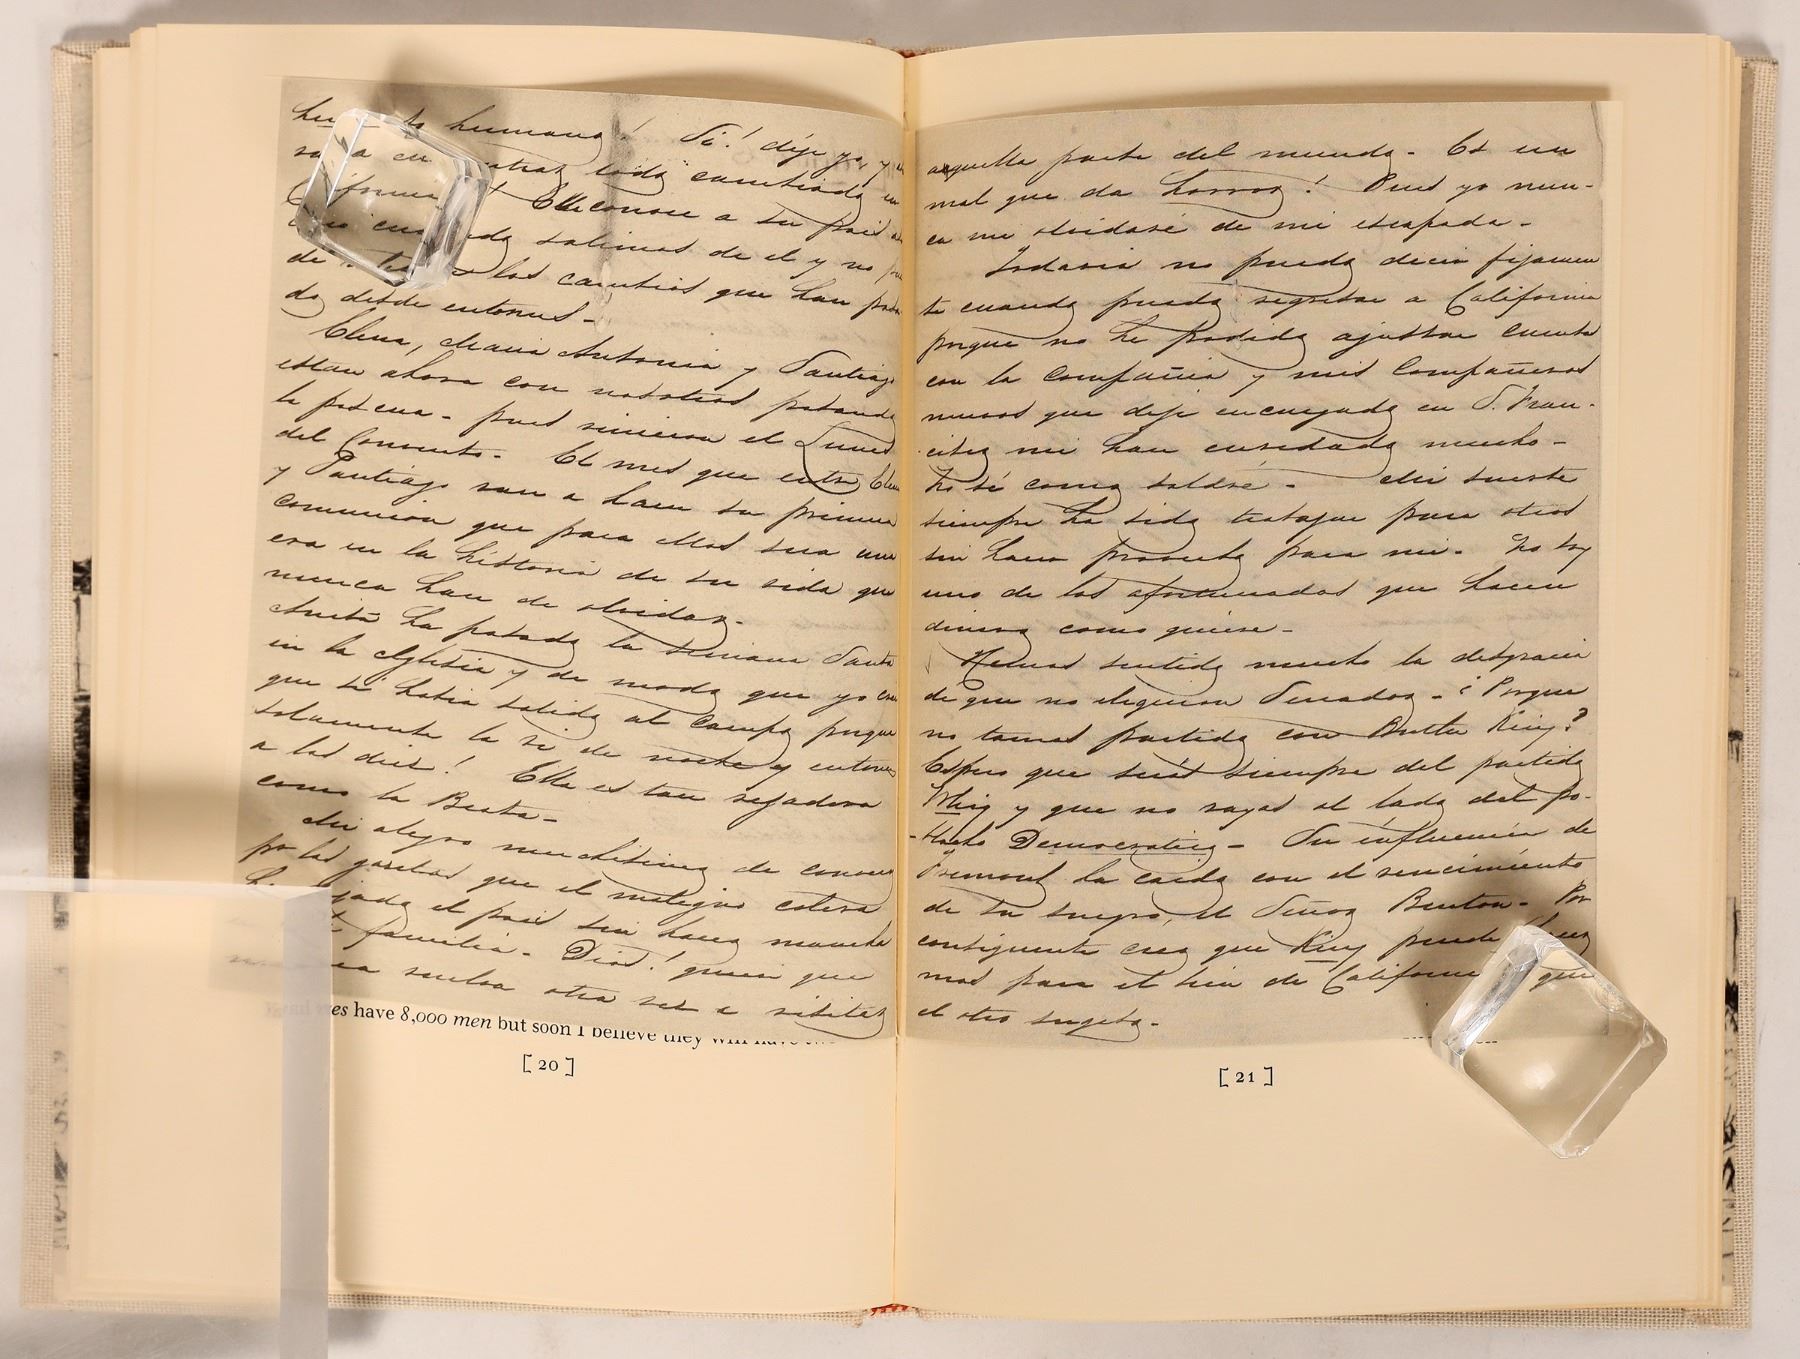 humana! Si! dije yo, y
toda cambiada en
Ella conoce a su pais
salimos de el y no
los cambios que han pasa
do desde entonces -
Elena, Maria Antonia y Santiago
estan ahora con nosotros pasando
la pascua - pues vinieron el Lunes
del Convento. - El mes que entra Elena
y Santiago van a hacer su primera
comunion que para ellos sera una
era en la historia de su vida que
nunca han de olvidar. -
Anita ha pasado la semana Santa
en la Yglesia y de modo que yo crei
que se habia salido al campo porque
solamente la vi de noche y entonces
a las diez! Ella es tan rezadora
como la Beata. -
Mi alegro muchisimo de conocer
por las gacetas que el maligno colera
el pais sin hacer mancha
familia - Dios! quiera que
vuelva otra vez a visitar
es have 8,000 men but soon I believe they will have
[ 20 ]
aquella parte del mundo - Es un
mal que da horror! Pues yo nun-
ca me olvidaré de mi escapada -
Todavia no puedo decir fijamen
te cuando puedo regresar a California
porque no he podido ajustar cuenta
con la Compañia y mis Compañeros
nuevos que deje encargado en S. Fran-
cisco me han enredado mucho -
No sé como saldré - Mi suerte
siempre ha sido trabajar para otros
sin hacer provecho para mi - No soy
uno de los afortunados que hacen
dinero como quiere -
Hemos sentido mucho la desgracia
de que no eligieron Senador - ¿Porque
no tomas partido con Butler King?
Espero que serás siempre del partido
Whig y que no vayas al lado del po-
Democratico - Su influencia de
Fremont ha caido con el vencimiento
de su suegro, el Señor Benton - Por
consiguiente creo que King puede hacer
mas para el bien de California que
el otro sugeto. -
[ 21 ]